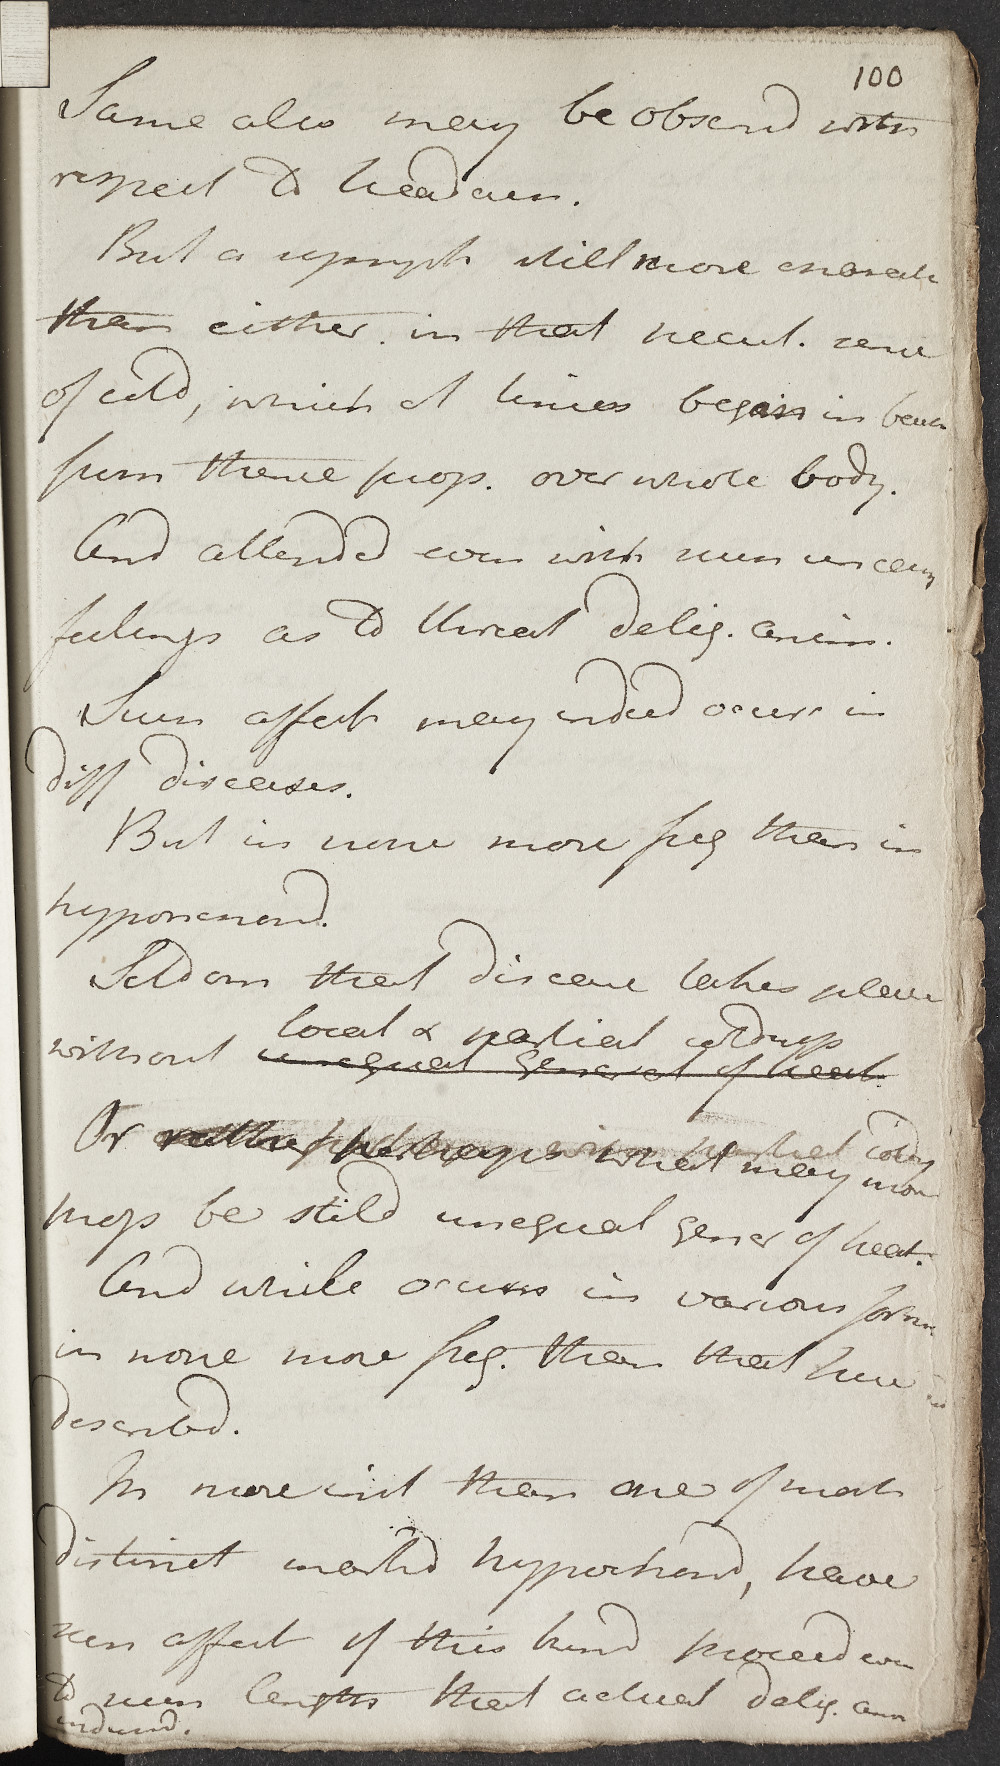 100
Same also may be obserd with
respect to headach.
But a sympt still more
than either. in that pecul. sense
of cold, which at times begin in
from thence prop. over whole body.
And attended even with such uneasy
feelings as to threat deliq. anim.
Such affect may indeed occur in
diff diseases.
But in none more freq than in
hypochond.
Seldom that disease takes place
local & partial coldness
without unequal generat of heat.
Or rather perhaps what may more
prop be stild unequal gener of heat.
And while occurs in various forms
in none more freq. than that here
described.
In more inst than one of most
distinct markd hypochond, have
seen affect of this kind proceed even
to such length that actual deliq. anim
inducd.